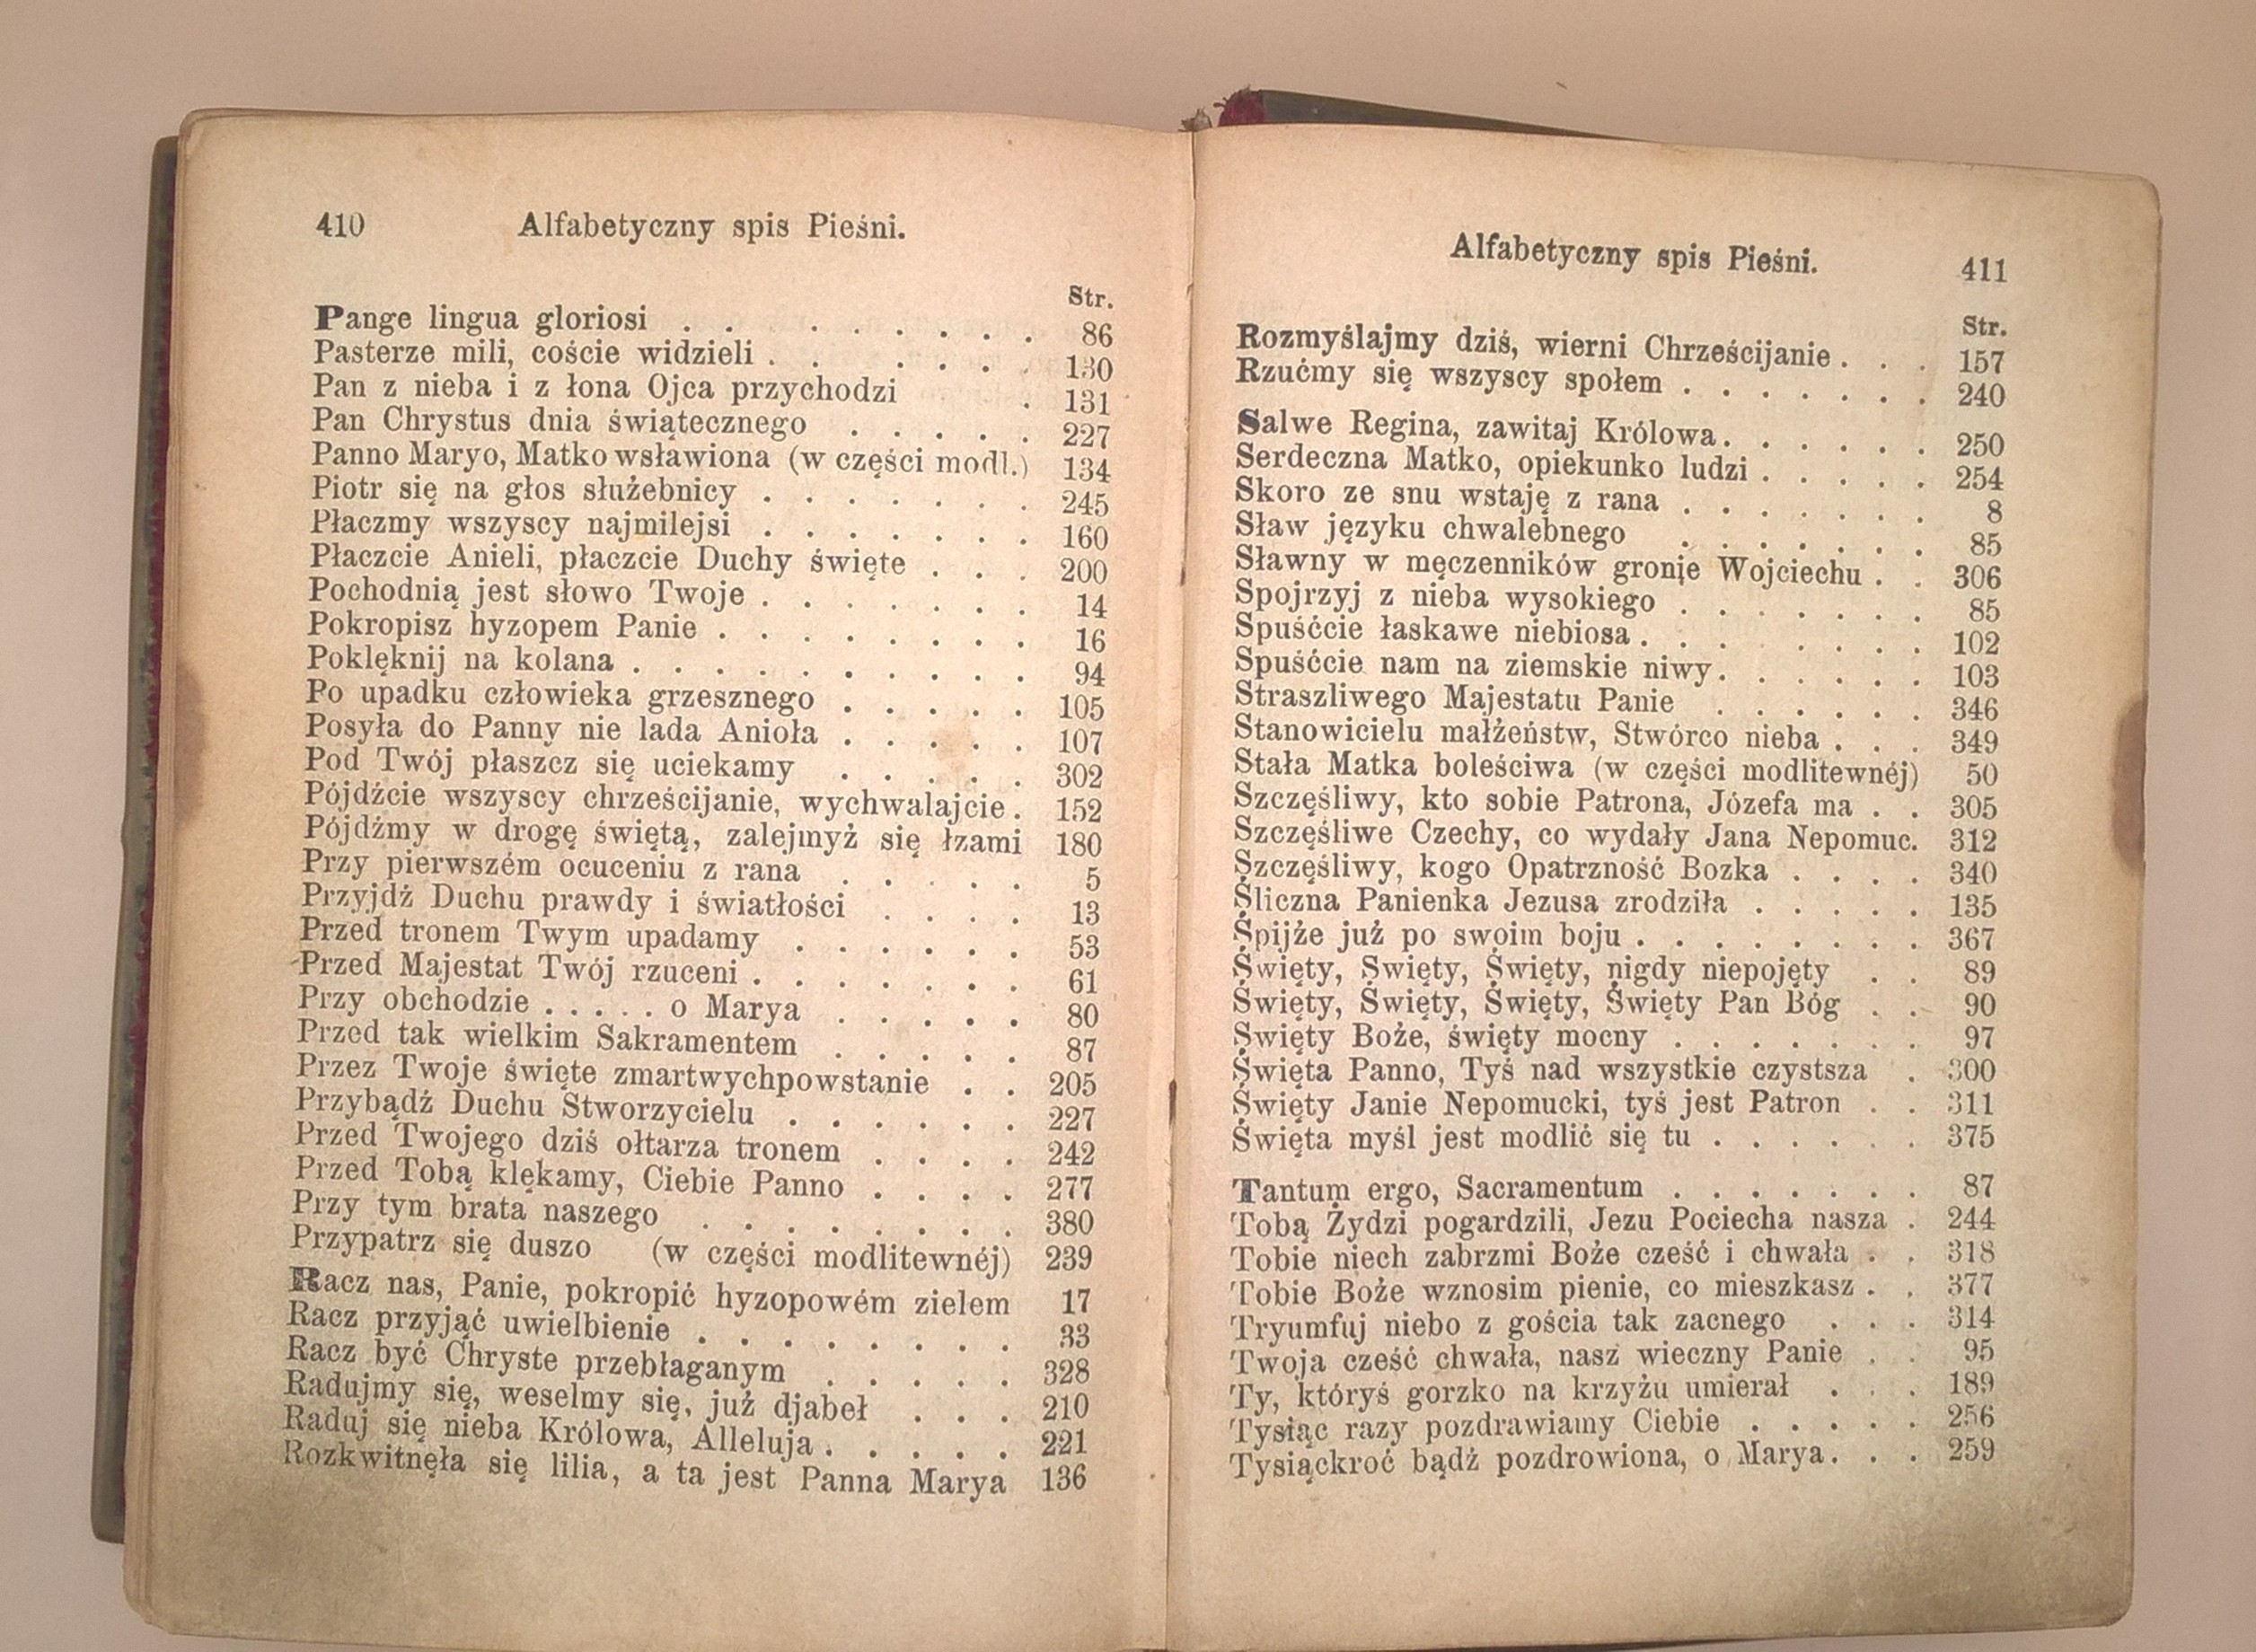 410 Alfabetyczny spis Pieśni.
Str.
Pange lingua gloriosi . . . . . . . . 86
Pasterze mili, coście widzieli . . . . . . 130
Pan z nieba i z łona Ojca przychodzi . 131
Pan Chrystus dnia świątecznego . . . . . 227
Panno Maryo, Matko wsławiona (w części modl.) 134
Piotr się na głos służebnicy . . . . . . . 245
Płaczmy wszyscy najmilejsi . . . . . . . 160
Płaczcie Anieli, płaczcie Duchy święte . . . 200
Pochodnią jest słowo Twoje . . . . . . . 14
Pokropisz hyzopem Panie . . . . . . . . 16
Poklęknij na kolana . . . . . . . . . . 94
Po upadku człowieka grzesznego . . . . . 105
Posyła do Panny nie lada Anioła . . . . . 107
Pod Twój płaszcz się uciekamy . . . . . 302
Pójdźcie wszyscy chrześcijanie, wychwalajcie . 152
Pójdźmy w drogę świętą, zalejmyż się łzami 180
Przy pierwszém ocuceniu z rana . . . . . 5
Przyjdź Duchu prawdy i światłości . . . . 13
Przed tronem Twym upadamy . . . . . . 53
Przed Majestat Twój rzuceni . . . . . . . 61
Przy obchodzie . . . . . o Marya . . . . . 80
Przed tak wielkim Sakramentem . . . . . 87
Przez Twoje święte zmartwychpowstanie . . 205
Przybądź Duchu Stworzycielu . . . . . . 227
Przed Twojego dziś ołtarza tronem . . . . 242
Przed Tobą klękamy, Ciebie Panno . . . . 277
Przy tym brata naszego . . . . . . . . 380
Przypatrz się duszo (w części modlitewnéj) 239
Racz nas, Panie, pokropić hyzopowém zielem 17
Racz przyjąć uwielbienie . . . . . . . . 33
Racz być Chryste przebłaganym . . . . . 328
Radujmy się, weselmy się, już djabeł . . . 210
Raduj się nieba Królowa, Alleluja . . . . . 221
Rozkwitnęła się lilia, a ta jest Panna Marya 136
Alfabetyczny spis Pieśni. 411
Str.
Rozmyślajmy dziś, wierni Chrześcijanie . . . 157
Rzućmy się wszyscy społem . . . . . . . 240
Salwe Regina, zawitaj Królowa . . . . . . 250
Serdeczna Matko, opiekunko ludzi . . . . . 254
Skoro ze snu wstaję z rana . . . . . . . 8
Sław języku chwalebnego . . . . . . . 85
Sławny w męczenników gronie Wojciechu . . 306
Spojrzyj z nieba wysokiego . . . . . . . 85
Spuśćcie łaskawe niebiosa . . . . . . . . 102
Spuśćcie nam na ziemskie niwy . . . . . . 103
Straszliwego Majestatu Panie . . . . . . 346
Stanowicielu małżeństw, Stwórco nieba . . . 349
Stała Matka boleściwa (w części modlitewnéj) 50
Szczęśliwy, kto sobie Patrona, Józefa ma . . 305
Szczęśliwe Czechy, co wydały Jana Nepomuc. 312
Szczęśliwy, kogo Opatrzność Bozka . . . . 340
Śliczna Panienka Jezusa zrodziła . . . . . 135
Śpijże już po swoim boju . . . . . . . . 367
Święty, Święty, Święty, nigdy niepojęty . . 89
Święty, Święty, Święty, Święty Pan Bóg . . 90
Święty Boże, święty mocny . . . . . . . 97
Święta Panno, Tyś nad wszystkie czystsza . 300
Święty Janie Nepomucki, tyś jest Patron . . 311
Święta myśl jest modlić się tu . . . . . . 375
Tantum ergo, Sacramentum . . . . . . . 87
Tobą Żydzi pogardzili, Jezu Pociecha nasza . 244
Tobie niech zabrzmi Boże cześć i chwała . . 318
Tobie Boże wznosim pienie, co mieszkasz . . 377
Tryumfuj niebo z gościa tak zacnego . . . 314
Twoja cześć chwała, nasz wieczny Panie . . 95
Ty, któryś gorzko na krzyżu umierał . . . 189
Tysiąc razy pozdrawiamy Ciebie . . . . . 256
Tysiąckroć bądź pozdrowiona, o Marya . . . 259